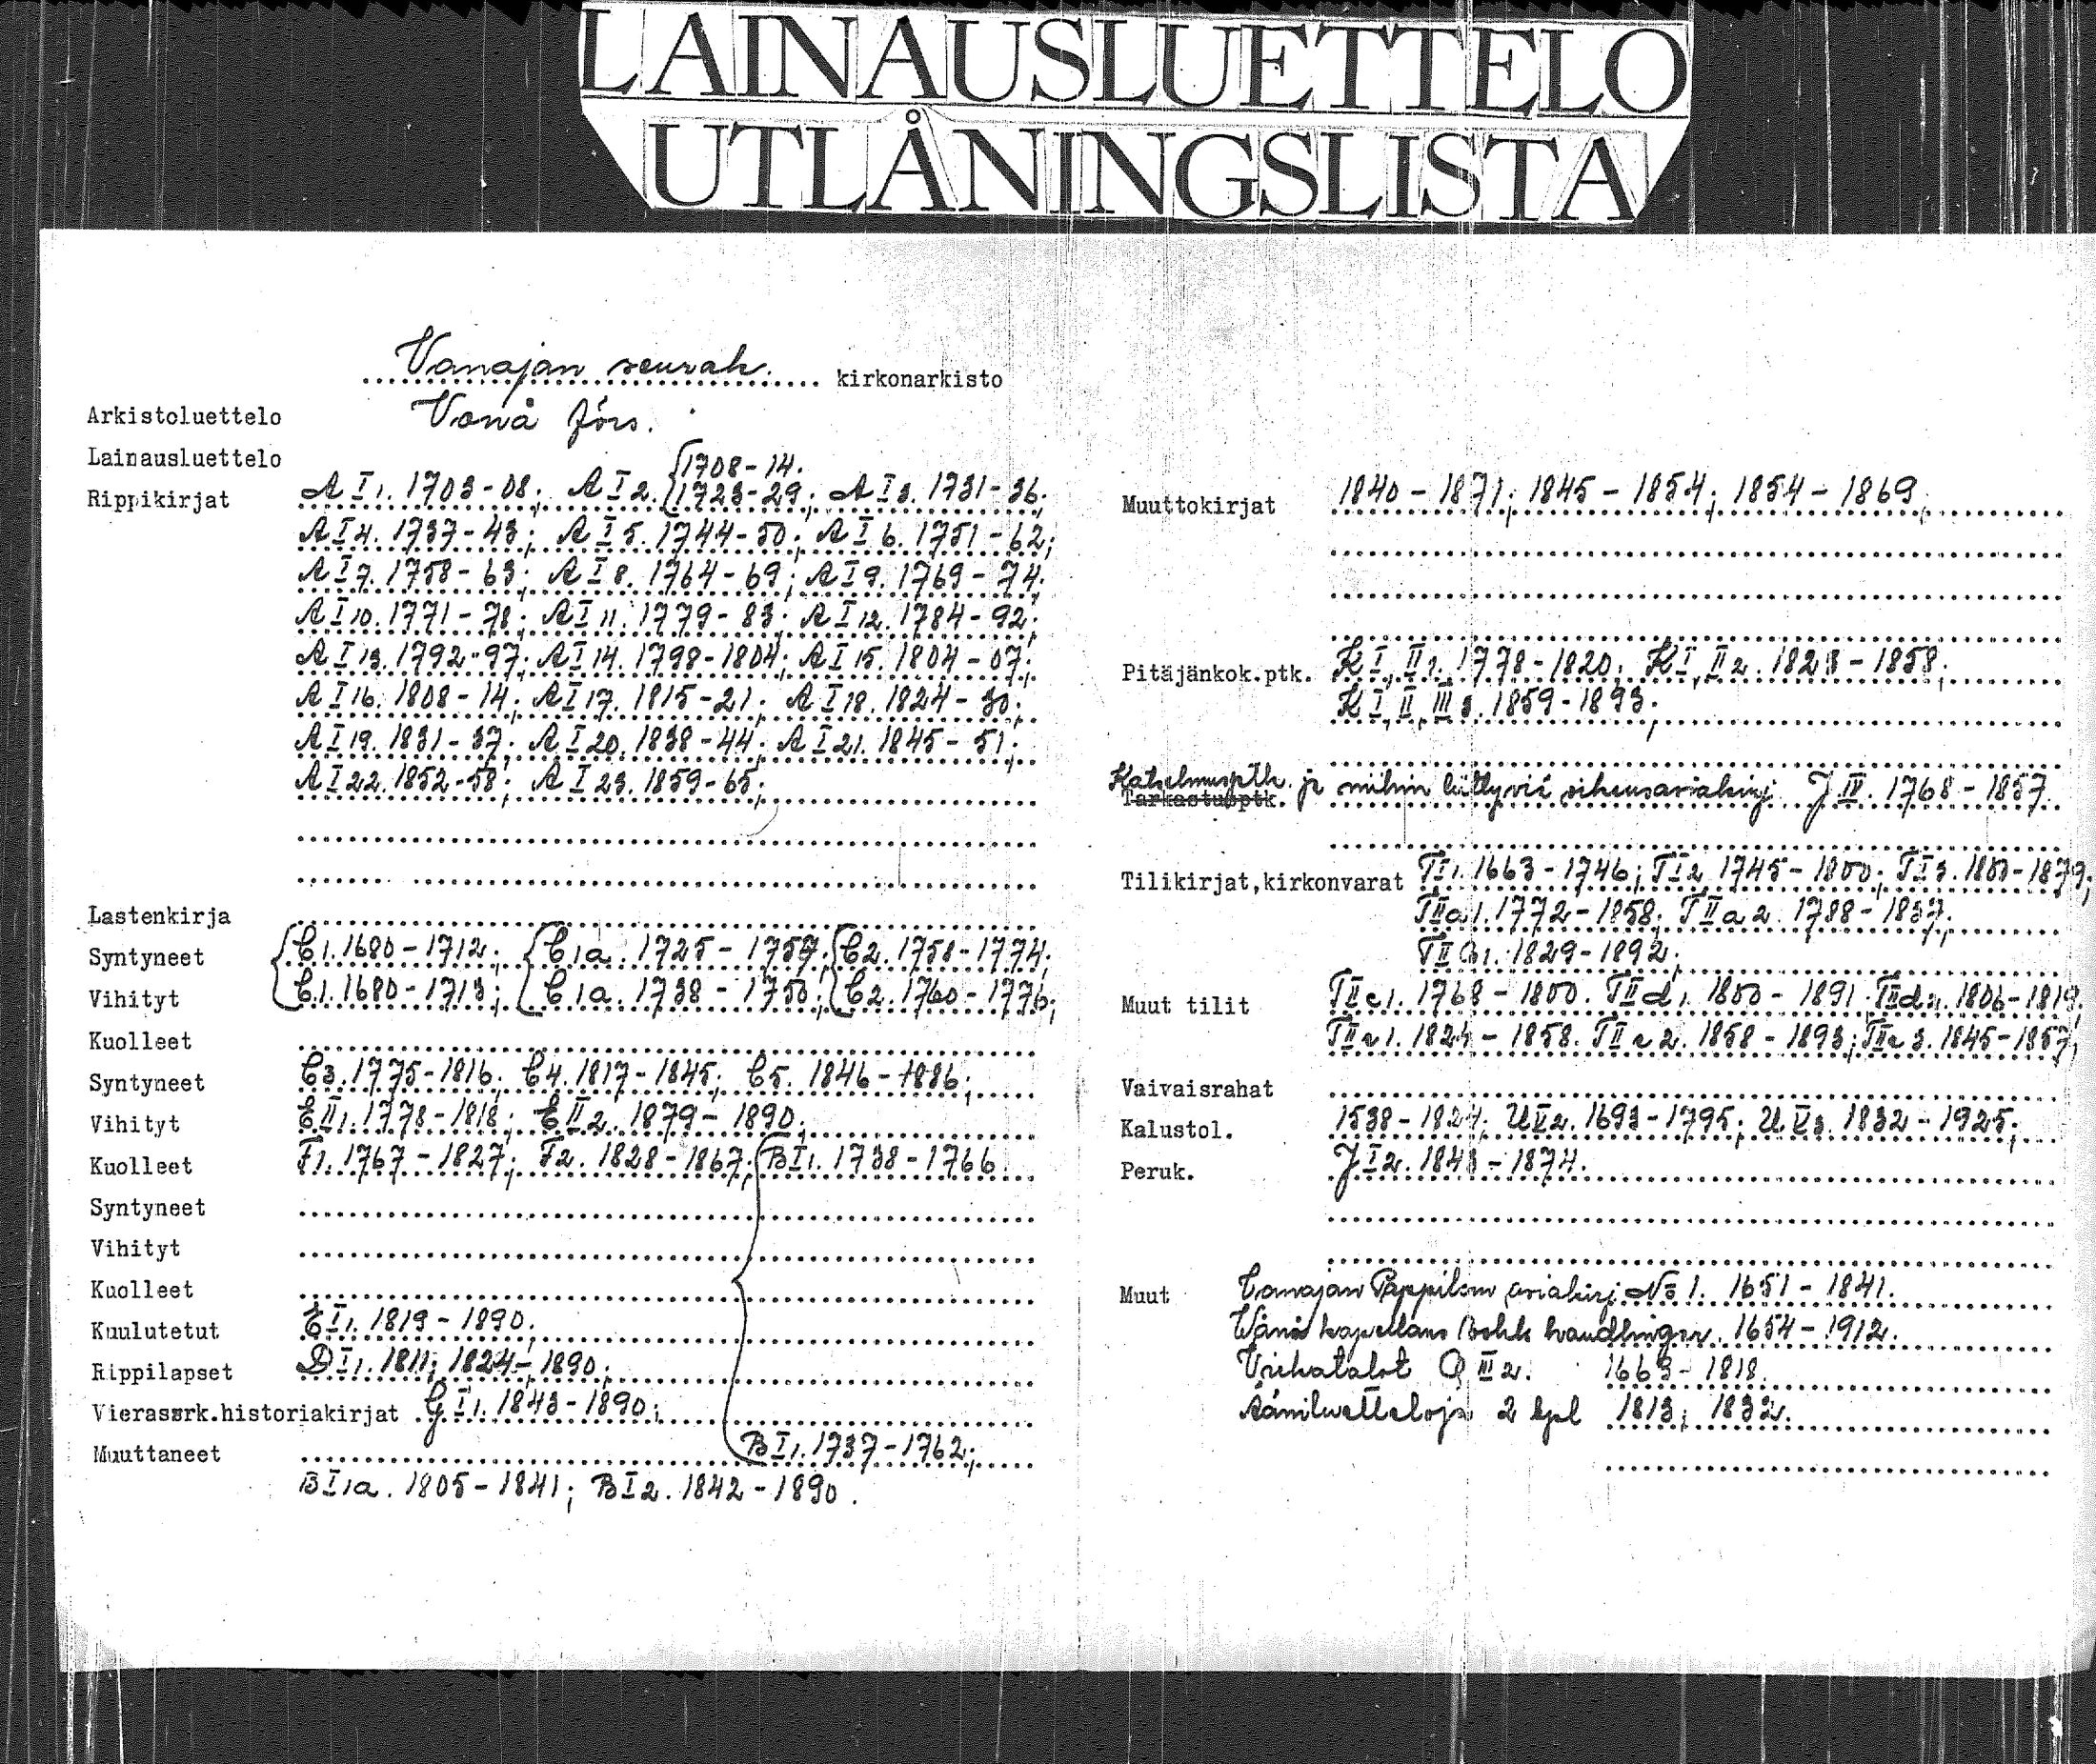 LAINAUSLUETTELO
UTLÅNINGSLISTA
Vanajan seurak. kirkonarkisto
Arkistoluettelo Vanå förs.
Lainausluettelo
Rippikirjat A I 1. 1703-08; A I 2. {1708-14. 1723-29; A I 3. 1731-36;
A I 4. 1737-43; A I 5. 1744-50; A I 6. 1751-62;
A I 7. 1758-63; A I 8. 1764-69; A I 9. 1769-74;
A I 10. 1771-78; A I 11. 1779-83; A I 12. 1784-92;
A I 13. 1792-97; A I 14. 1798-1804; A I 15. 1804-07;
A I 16. 1808-14; A I 17. 1815-21; A I 18. 1824-30;
A I 19. 1831-37; A I 20. 1838-44; A I 21. 1845-51;
A I 22. 1852-58; A I 23. 1859-65;
Lastenkirja
Syntyneet {C 1. 1680-1712; {C 1a. 1725-1757; {C 2. 1758-1774;
Vihityt C.1. 1680-1713; C 1a. 1738-1750; C 2. 1760-1776;
Kuolleet
Syntyneet C 3. 1775-1816; C 4. 1817-1845; C 5. 1846-1886;
Vihityt E II 1. 1778-1818; E II 2. 1879-1890;
Kuolleet F 1. 1767-1827; F 2. 1828-1867; {B I 1. 1738-1766
Syntyneet
Vihityt
Kuolleet
Kuulutetut E I 1. 1819-1890.
Rippilapset D I 1. 1811; 1824-1890;
Vierassrk.historiakirjat G I 1. 1843-1890;
Muuttaneet B I 1. 1737-1762;
B I 1a. 1805-1841; B I 2. 1842-1890.
Muuttokirjat 1840-1871; 1845-1854; 1854-1869;
Pitäjänkok.ptk. K I, II 1. 1778-1820; K I, II 2. 1823-1858;
K I, II, III 3. 1859-1893;
Katselmusptk. ja niihin liittyviä oikeusasiakirj. J IV. 1768-1857
Tarkastusptk.
Tilikirjat,kirkonvarat T I 1. 1663-1746; T I 2. 1745-1800; T I 3. 1800-1879;
T II a 1. 1772-1858; T II a 2. 1788-1837;
T II b 1. 1829-1892;
Muut tilit T II c 1. 1768-1800. T II d 1. 1800-1891; T II d 2. 1806-1819;
T II e 1. 1824-1858. T II e 2. 1858-1893; T II e 3. 1845-1857;
Vaivaisrahat
Kalustol. 1538-1824; U V 2. 1693-1795; U V 3. 1832-1925;
Peruk. J I 2. 1843-1874.
Muut Vanajan Pappilan asiakirj. No 1. 1651-1841.
Wånå kapellans handlingar. 1654-1912.
Q III 2. 1663-1818.
Ääniluetteloja 2 kpl 1813; 1832.